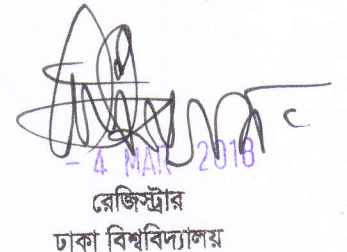 - 4 MAR 2018
রেজিস্ট্রার
ঢাকা বিশ্ববিদ্যালয়